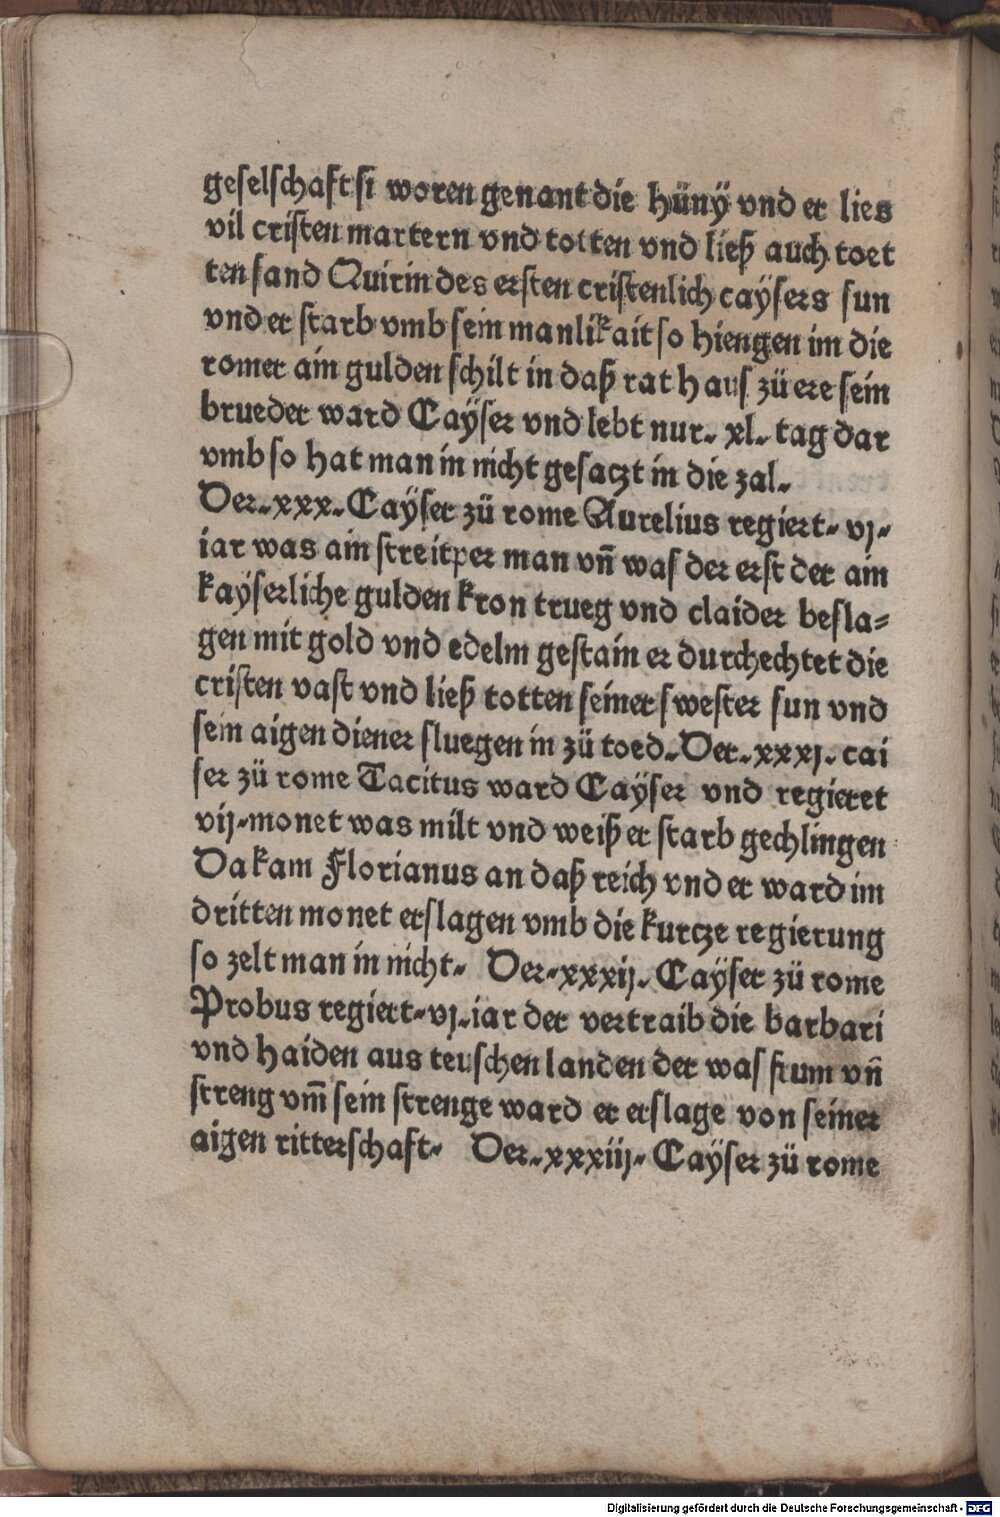 geselschaft si woren genant die hüny̋ vnd er lies
vil cristen martern vnd totten vnd ließ auch toet
ten sand Quirin des ersten cristenlich caÿsers sun
vnd er starb vmb sein manlikait so hiengen im die
romer ain gulden schilt in daß rat haus zü ere sein
brueder ward Caÿser vnd lebt nur. xl. tag dar
vmb so hat man in nicht gesaczt in die zal.
Der.xxx.Caÿser zü rome Aurelius regiert. vj.
iar was ain streitper man vn̄ was der erst der ain
kaÿserliche gulden kron trueg vnd claider besla⸗
gen mit gold vnd edelm gestain er durchechtet die
cristen vast vnd ließ totten seiner swester sun vnd
sein aigen diener sluegen in zü toed.Der.xxxj. cai
ser zü rome Tacitus ward Caÿser vnd regieret
vij.monet was milt vnd weiß er starb gechlingen
Da kam Florianus an daß reich vnd er ward im
dritten monet erslagen vmb die kurcze regierung
so zelt man in nicht. Der.xxxij. Caÿser zü rome
Probus regiert.vj.iar der vertraib die barbari
vnd haiden aus teuschen landen der was frum vn̄
streng vm̄ sein strenge ward er erslage von seiner
aigen ritterschaft. Der.xxxiij. Caÿser zü rome
Digitalisierung gefördert durch die Deutsche Forschungsgemeinschaft - DFG